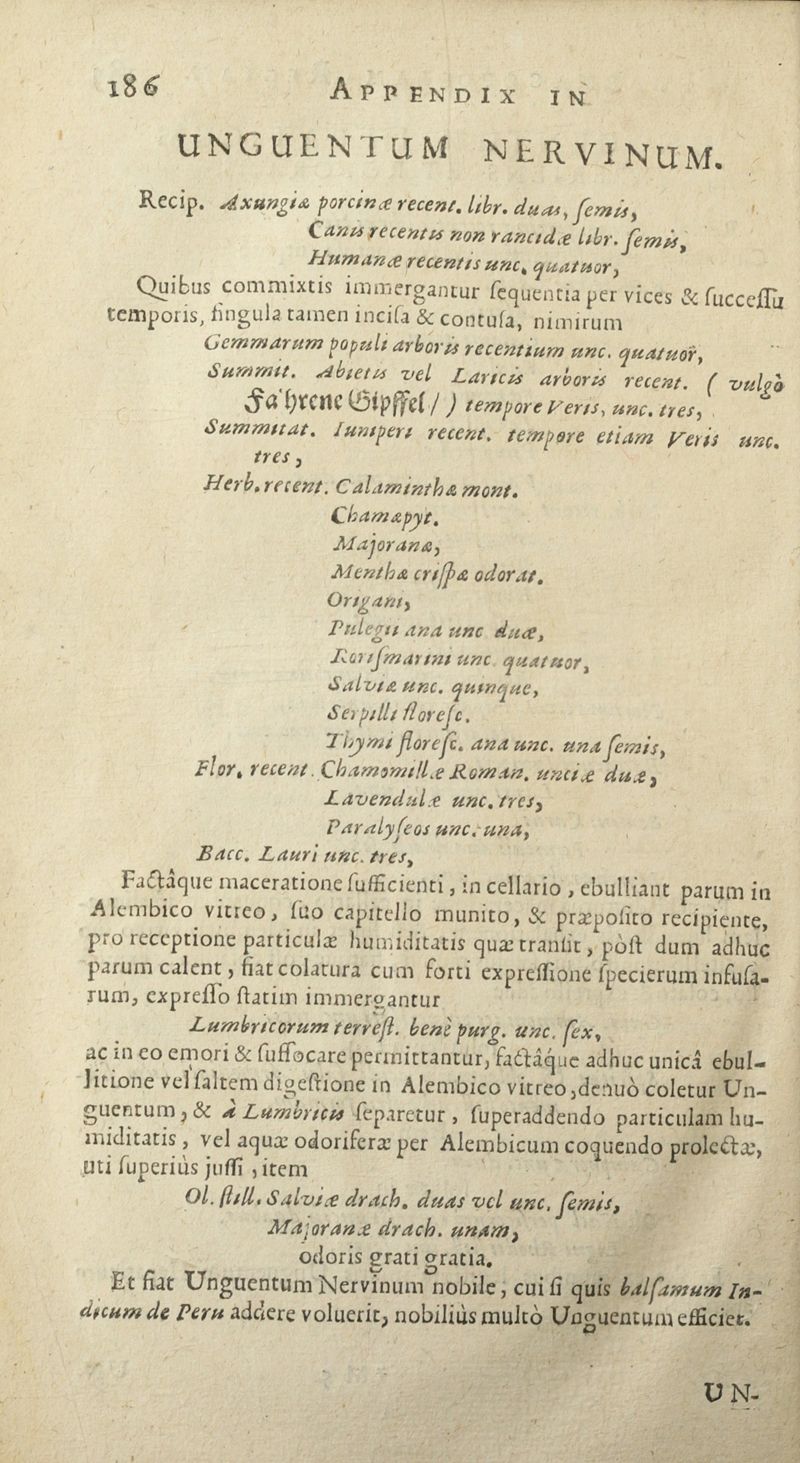 186 APPENDIX IN
UNGUENTUM NERVINUM.
Recip. Axungiæ porcinæ recent. libr. duas, ſemis,
Canis recentis non rancidæ libr. ſemis,
Humanæ recentis unc. quatuor,
Quibus commixtis immergantur ſequentia per vices & ſucceſſu
temporis, ſingula tamen inciſa & contuſa, nimirum
Gemmarum populi arboris recentium unc. quatuor,
Summit. Abietis vel Laricis arboris recent. ( vulgò
Fähꝛene Gipffel / ) tempore Veris, unc. tres,
Summitat. Iuniperi recent. tempore etiam Veris unc.
tres,
Herb. recent. Calaminthæ mont.
Chamæpyt.
Majoranæ,
Menthæ criſpæ odorat.
Origani,
Pulegii ana unc duæ,
Roriſmarini unc. quatuor,
Salviæ unc. quinque,
Serpilli floreſc.
Thymi floreſc. ana unc. una ſemis,
Flor. recent. Chamomillæ Roman. unciæ duæ,
Lavendulæ unc. tres,
Paralyſeos unc. una,
Bacc. Lauri unc. tres,
Factâque maceratione ſufficienti, in cellario, ebulliant parum in
Alembico vitreo, ſuo capitello munito, & præpoſito recipiente,
pro receptione particulæ humiditatis quæ tranſit, pòſt dum adhuc
parum calent, fiat colatura cum forti expreſſione ſpecierum infuſa-
rum, expreſſo ſtatim immergantur
Lumbricorum terreſt. benè purg. unc. ſex,
ac in eo emori & ſuffocare permittantur, factâque adhuc unicâ ebul-
litione vel ſaltem digeſtione in Alembico vitreo, denuò coletur Un-
guentum, & à Lumbricis ſeparetur, ſuperaddendo particulam hu-
miditatis, vel aquæ odoriferæ per Alembicum coquendo prolectæ,
uti ſuperiùs juſſi, item
Ol. ſtill. Salviæ drach. duas vel unc. ſemis,
Majoranæ drach. unam,
odoris grati gratia.
Et fiat Unguentum Nervinum nobile, cui ſi quis balſamum In-
dicum de Peru addere voluerit, nobiliùs multò Unguentum efficiet.
UN-